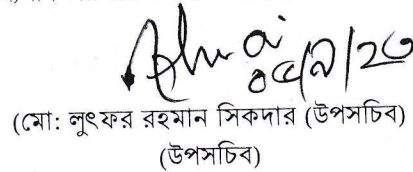 ০৫/৭/২৩
(মো: লুৎফর রহমান সিকদার (উপসচিব)
(উপসচিব)